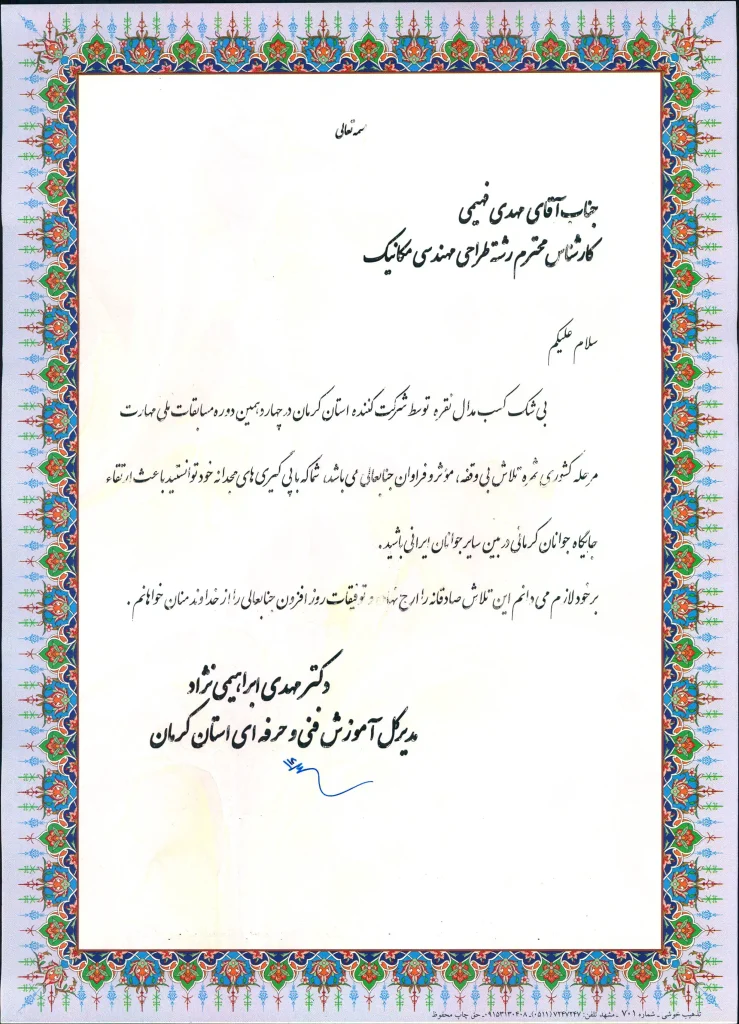 بسمه تعالی
جناب آقای مهدی فهیمی
کارشناس محترم رشته طراحی مهندسی مکانیک
سلام علیکم
بی شک کسب مدال نقره توسط شرکت کننده استان کرمان در چهاردهمین دوره مسابقات ملی مهارت
مرحله کشوری ثمره تلاش بی وقفه، مؤثر و فراوان جنابعالی می باشد، شما که با پی گیری های مجدانه خود توانستید باعث ارتقاء
جایگاه جوانان کرمانی در بین سایر جوانان ایرانی باشید.
بر خود لازم می دانم این تلاش صادقانه را ارج نهاده و توفیقات روز افزون جنابعالی را از خداوند منان خواهانم.
دکتر مهدی ابراهیمی نژاد
مدیرکل آموزش فنی و حرفه ای استان کرمان
تذهیب خوشی - شماره ۷۰۱ - مشهد تلفن: ۷۲۴۷۲۴۷ (۰۵۱۱) - ۰۹۱۵۳۱۳۰۴۰۸ - حق چاپ محفوظ